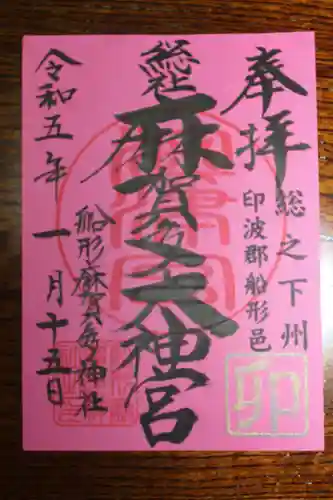 奉拝
総之下州
印波郡船形邑
総社
麻賀多大神宮
船形麻賀多神社
令和五年一月十五日
卯